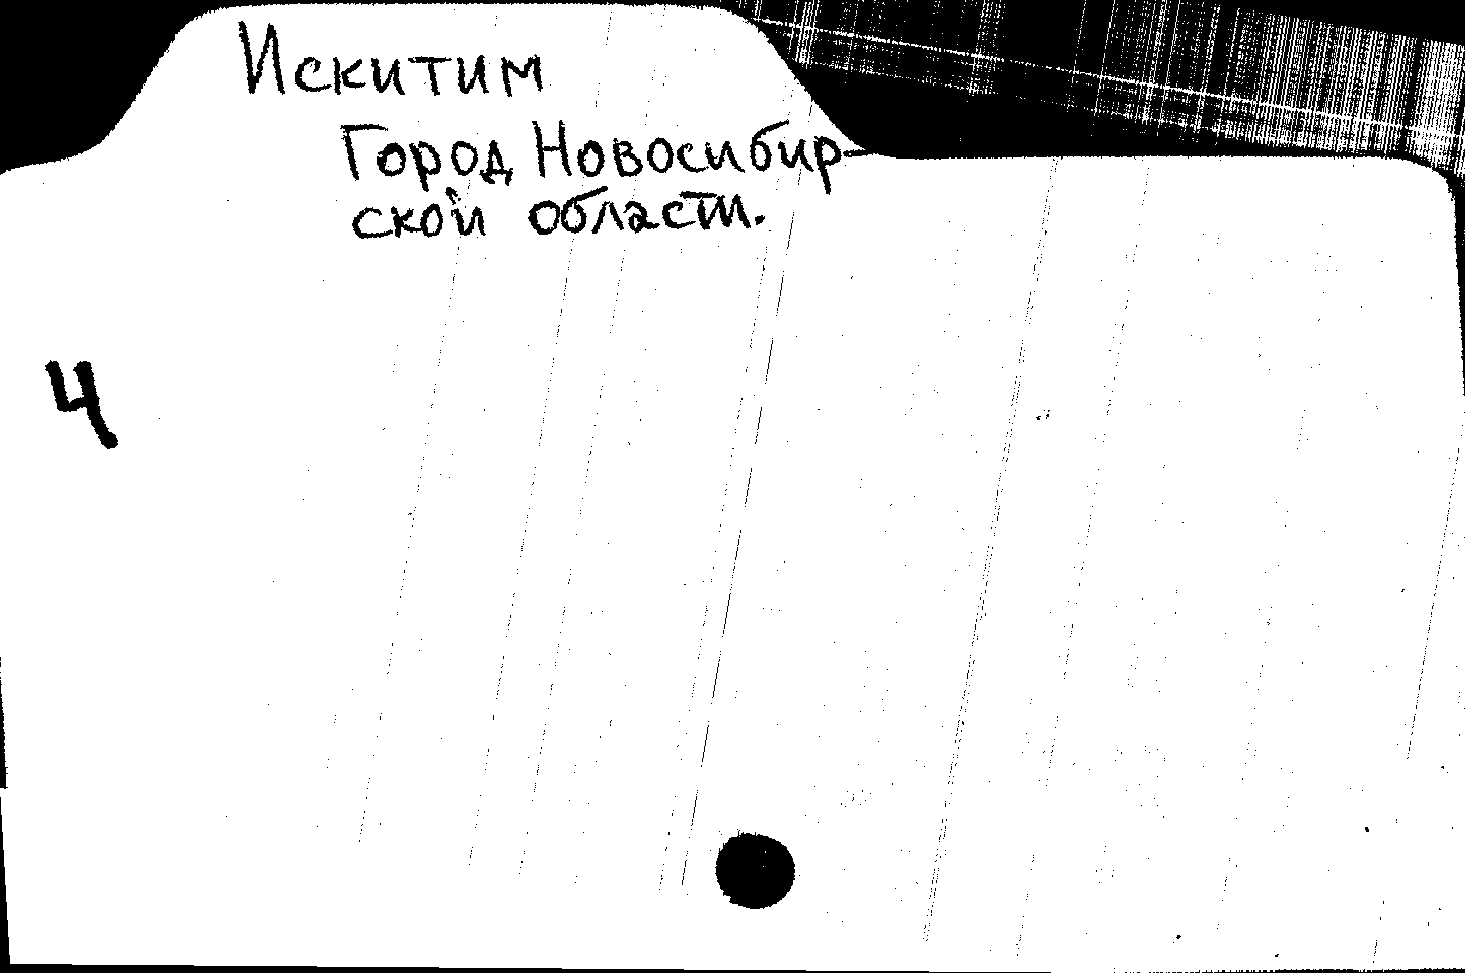 Искитим
Город Новосибир-
ской области.
4